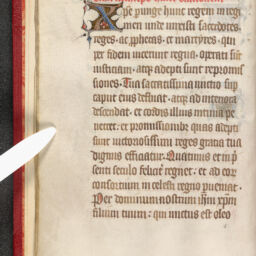 xpe punge hunc regem in regi
men unde unxisti sacerdotes.
reges. ac pphetas. et martyres. qui
per fidem uicerunt regna. operati sūt
iusticiam. atqz adepti sunt repromis
siones. Tua sacratissima unctio sup
caput eius defluat. atqz ad interiora
descendat. et cordis illius intima pe
netret. et promissionibz quas adepti
sunt uictoriosissimi reges gratia tua
dignus efficiatur. Quatinus et in p̄
senti seculo feliciter regnet. et ad eorū
consortium in celesti regno pueniat.
Per dominum nostrum ihm xpm
filium tuum. qui unctus est oleo